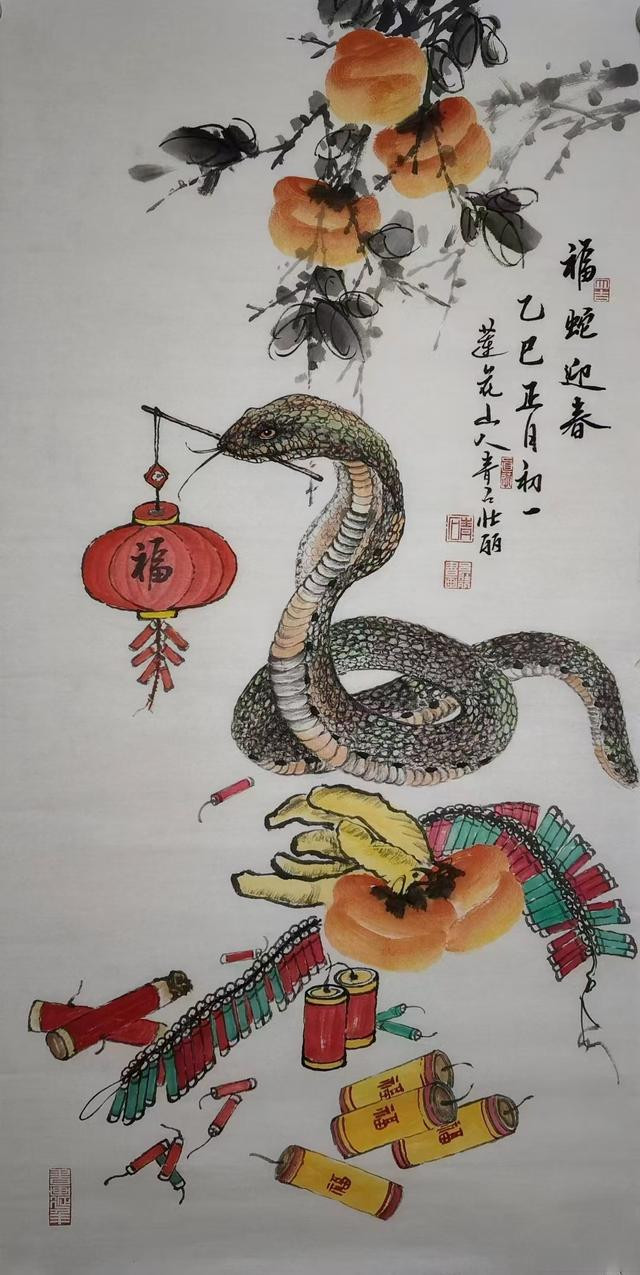 福蛇迎春
乙巳正月初一
蓮花山人青石壮丽
福
福
福
福
福